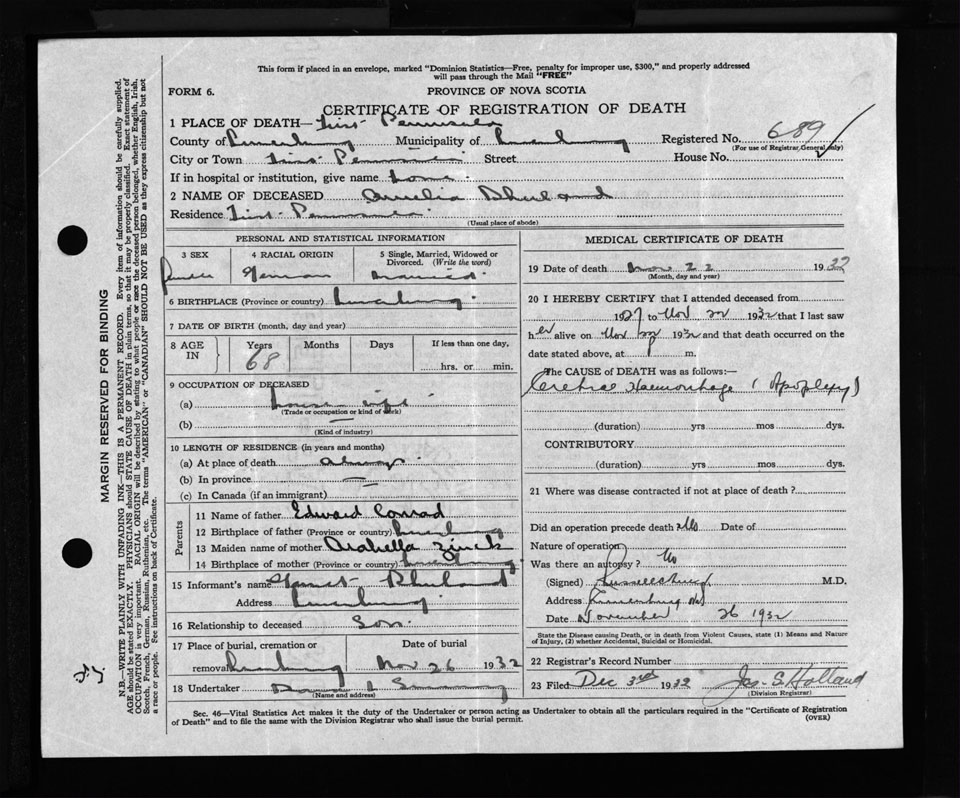 This form if placed in an envelope, marked "Dominion Statistics—Free, penalty for improper use, $300," and properly addressed
will pass through the Mail "FREE"
FORM 6. PROVINCE OF NOVA SCOTIA
CERTIFICATE OF REGISTRATION OF DEATH
1 PLACE OF DEATH— First Peninsula
County of Lunenburg Municipality of Lunenburg Registered No. 689
(For use of Registrar General only)
City or Town First Peninsula Street House No.
If in hospital or institution, give name home
2 NAME OF DECEASED
Residence First Peninsula
(Usual place of abode)
PERSONAL AND STATISTICAL INFORMATION
3 SEX 4 RACIAL ORIGIN 5 Single, Married, Widowed or
Divorced. (Write the word)
Female German Married
6 BIRTHPLACE (Province or country) Lunenburg
7 DATE OF BIRTH (month, day and year)
8 AGE IN Years Months Days If less than one day,
68 hrs. or min.
9 OCCUPATION OF DECEASED
(a) house wife
(Trade or occupation or kind of work)
(b) —
(Kind of industry)
10 LENGTH OF RESIDENCE (in years and months)
(a) At place of death always
(b) In province —
(c) In Canada (if an immigrant)
Parents
11 Name of father Edward Conrad
12 Birthplace of father (Province or country) Lunenburg
13 Maiden name of mother Arabella Zinck
14 Birthplace of mother (Province or country) Lunenburg
15 Informant's name
Address Lunenburg
16 Relationship to deceased Son
17 Place of burial, cremation or Date of burial
removal Lunenburg Nov 26 1932
18 Undertaker
(Name and address)
MEDICAL CERTIFICATE OF DEATH
19 Date of death Nov 22 1932
(Month, day and year)
20 I HEREBY CERTIFY that I attended deceased from
1927 to Nov 22 1932 that I last saw
her alive on Nov 22 1932 and that death occurred on the
date stated above, at m.
The CAUSE OF DEATH was as follows:—
Haemorrhage (Apoplexy)
(duration) yrs mos dys.
CONTRIBUTORY
(duration) yrs mos dys.
21 Where was disease contracted if not at place of death?
Did an operation precede death? No Date of
Nature of operation
Was there an autopsy? No
(Signed) M.D.
Address Lunenburg NS
Date November 26 1932
State the Disease causing Death, or in death from Violent Causes, state (1) Means and Nature
of Injury, (2) whether Accidental, Suicidal or Homicidal.
22 Registrar's Record Number
23 Filed Dec 3rd 1932 Jas. S. Holland
(Division Registrar)
Sec. 46—Vital Statistics Act makes it the duty of the Undertaker or person acting as Undertaker to obtain all the particulars required in the "Certificate of Registration
of Death" and to file the same with the Division Registrar who shall issue the burial permit.
(OVER)
MARGIN RESERVED FOR BINDING
N.B.—WRITE PLAINLY WITH UNFADING INK—THIS IS A PERMANENT RECORD. Every item of information should be carefully supplied.
AGE should be stated EXACTLY. PHYSICIANS should STATE CAUSE OF DEATH in plain terms, so that it may be properly classified. Exact statement of
OCCUPATION is very important. RACIAL ORIGIN will be described by stating to what people or race the deceased person belonged, whether English, Irish,
Scotch, French, German, Russian, Ruthenian, etc. The terms "AMERICAN" or "CANADIAN" SHOULD NOT BE USED as they express citizenship but not
a race or people. See instructions on back of Certificate.